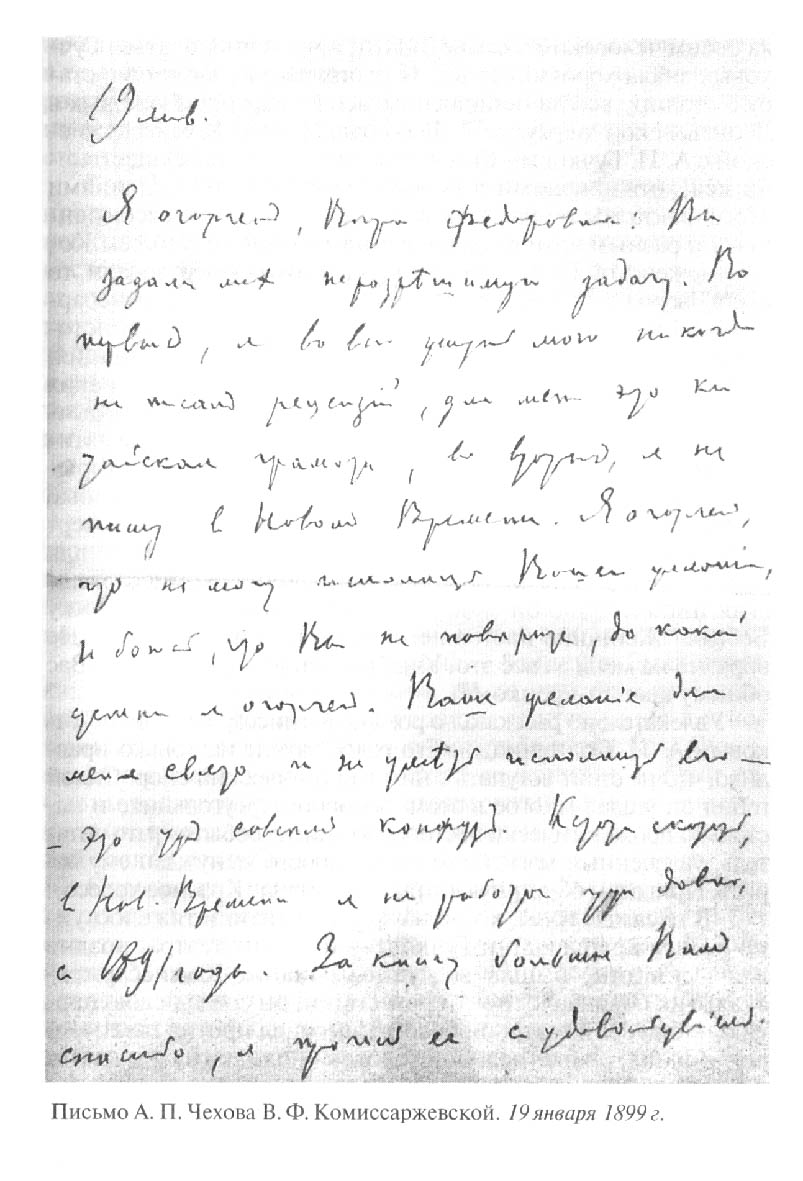 19 янв.
Я огорченъ, Вѣра Федоровна. Вы
задали мнѣ неразрѣшимую задачу. Во
первыхъ, я во всю жизнь мою никогда
не писалъ рецензій, для меня это ки
тайская грамота, во вторыхъ, я не
пишу в Новомъ Времени. Я огорченъ,
что не могу исполнить Ваше желаніе,
и боюсь, что Вы не поверите, до какой
степени я огорченъ. Ваше желаніе для
меня свято и не умѣть исполнить его —
— это ужъ совсѣмъ конфузъ. Кстати сказать,
в Нов. Времени я не работаю уже давно,
с 1891 года. За книгу большое Вамъ
спасибо, я прочелъ ее с удовольствіемъ.
Письмо А. П. Чехова В. Ф. Комиссаржевской. 19 января 1899 г.